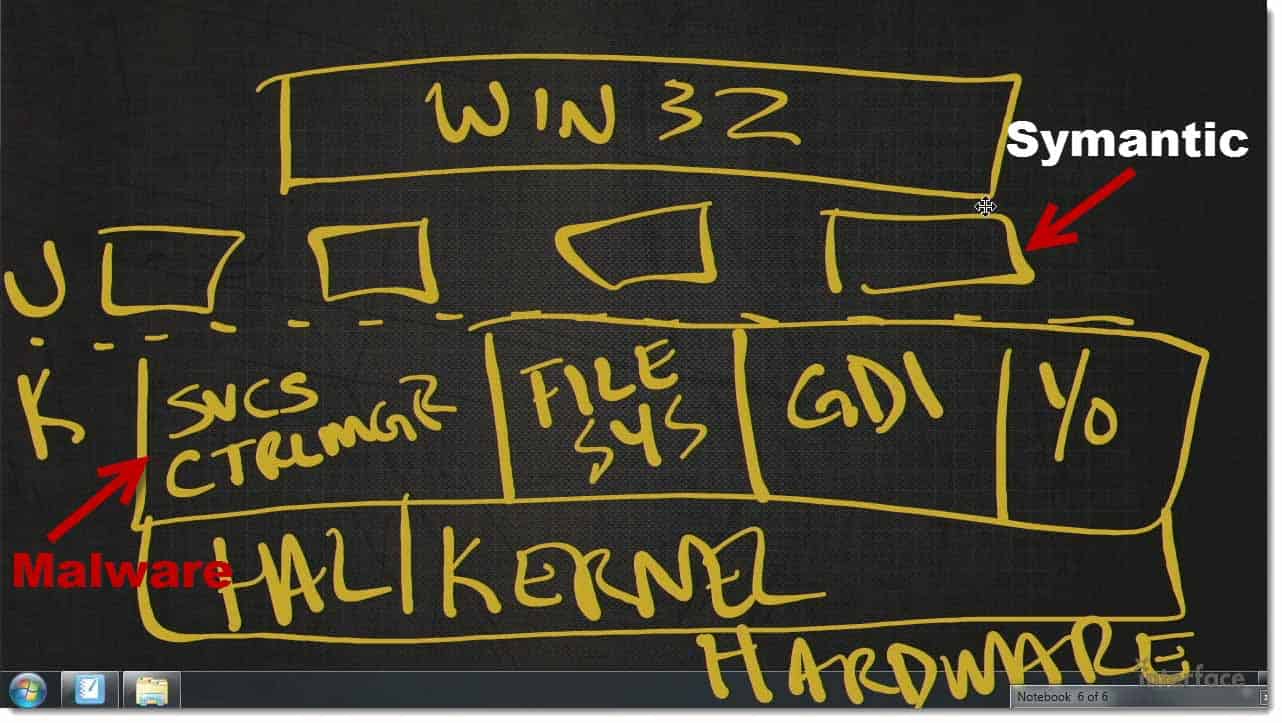 WIN 32
Symantic
U
K
SVCS
CTRLMGR
FILE
SYS
GDI
I/O
Malware
HAL
KERNEL
HARDWARE
interface
Notebook 6 of 6